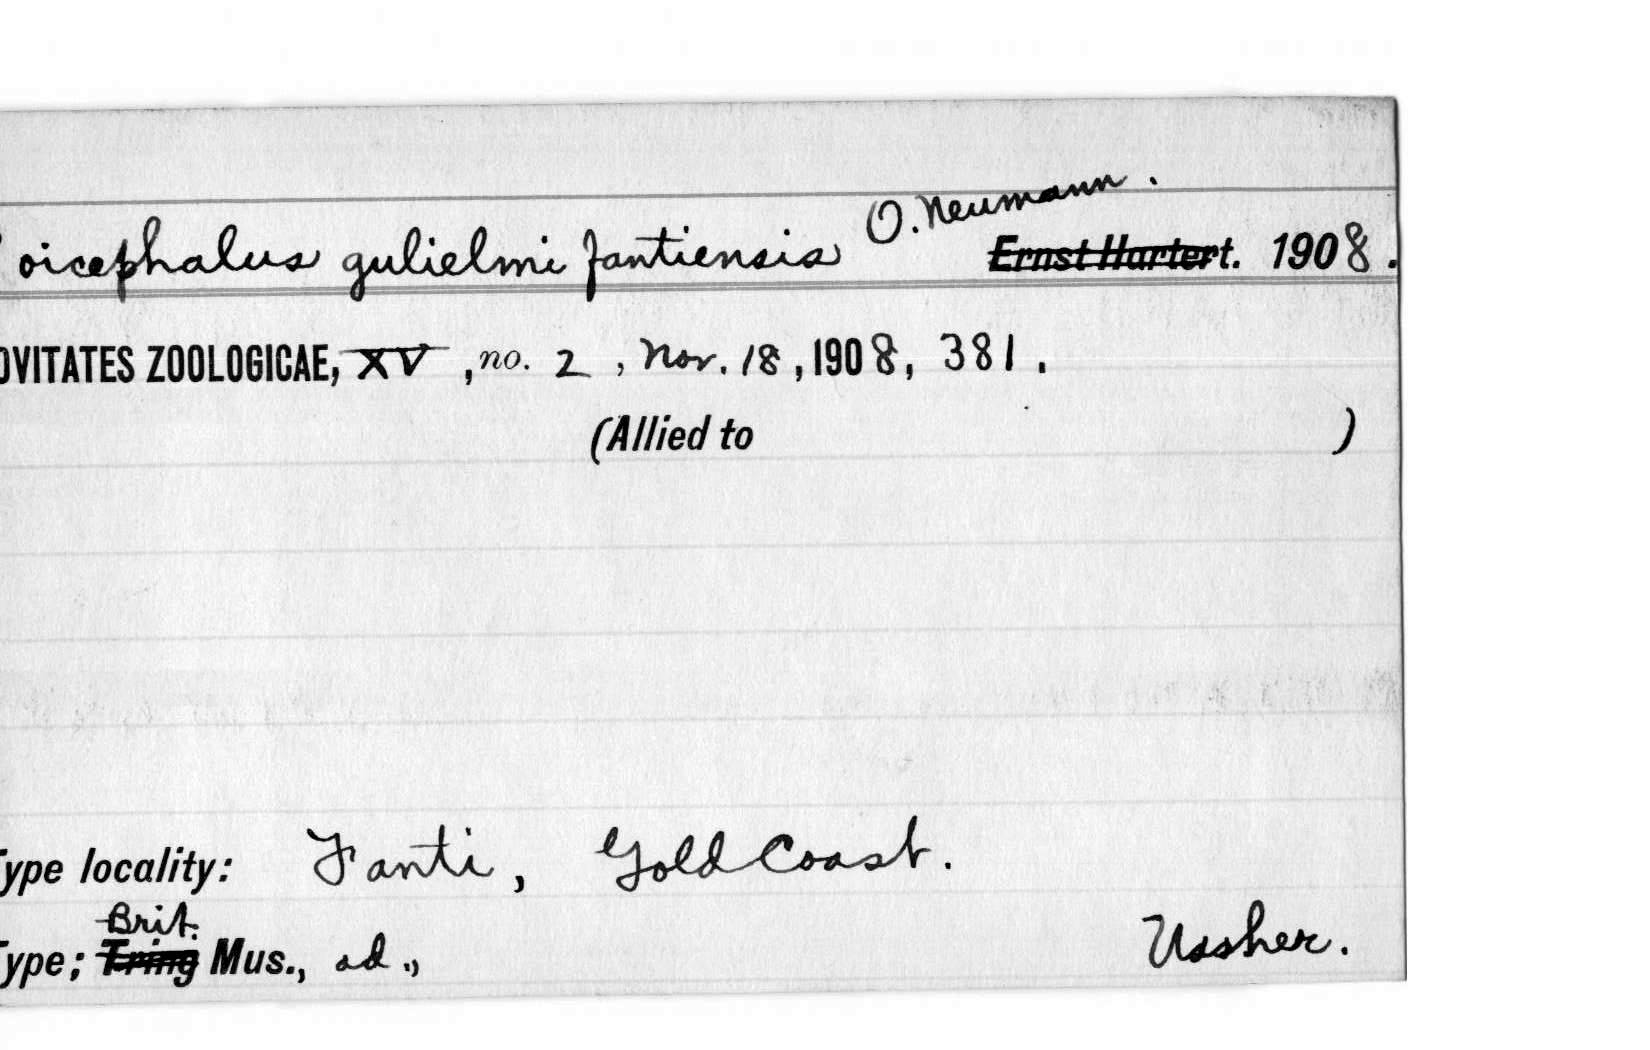 oicephalus gulielmi fantiensis O. Neumann.
Ernst Hartert. 1908.
OVITATES ZOOLOGICAE, XV, no. 2, Nov. 18, 1908, 381.
(Allied to )
Type locality: Fanti, Gold Coast.
Brit.
Type; Tring Mus., ad., Ussher.